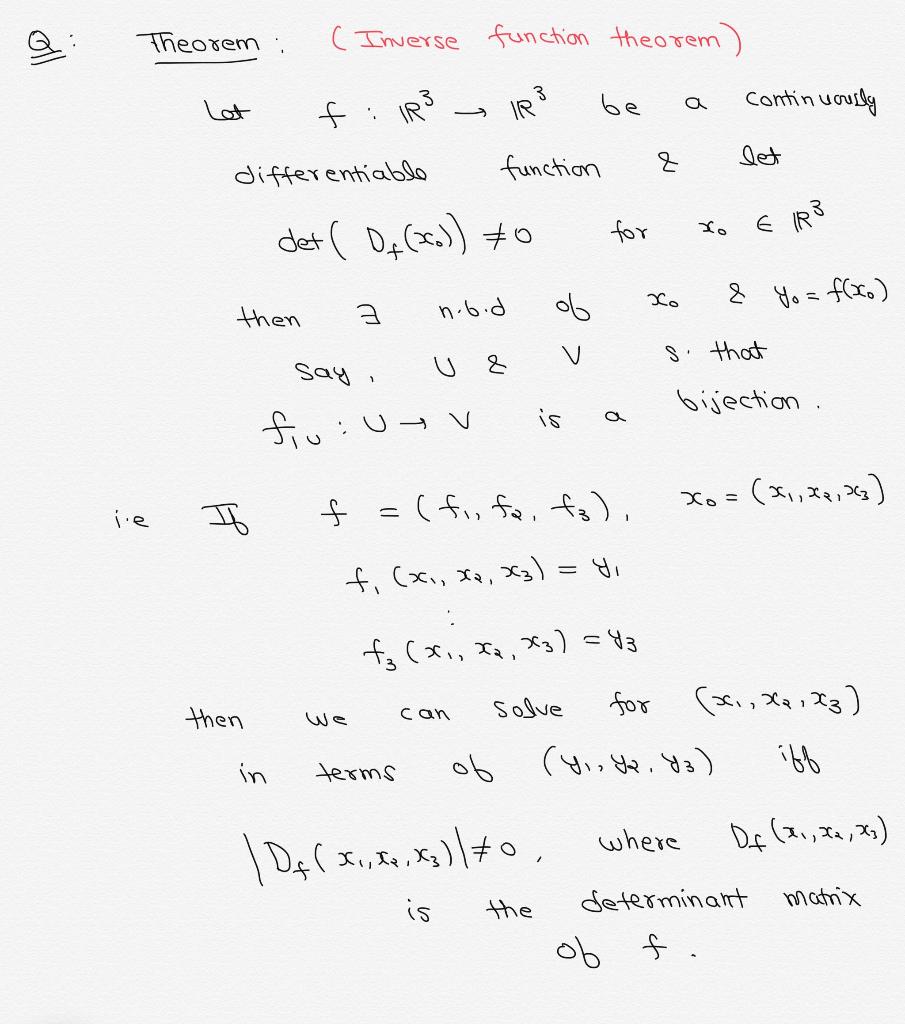 Q: Theorem : (Inverse function theorem)
Let f : ℝ³ → ℝ³ be a continuously
differentiable function & let
det( D_f(x₀)) ≠ 0 for x₀ ∈ ℝ³
then ∃ n.b.d of x₀ & y₀ = f(x₀)
say, U & V s. that
f|_U : U → V is a bijection.
i.e If f = (f₁, f₂, f₃), x₀ = (x₁, x₂, x₃)
f₁ (x₁, x₂, x₃) = y₁
⋮
f₃ (x₁, x₂, x₃) = y₃
then we can solve for (x₁, x₂, x₃)
in terms of (y₁, y₂, y₃) iff
|D_f( x₁, x₂, x₃)| ≠ 0, where D_f (x₁, x₂, x₃)
is the determinant matrix
of f.